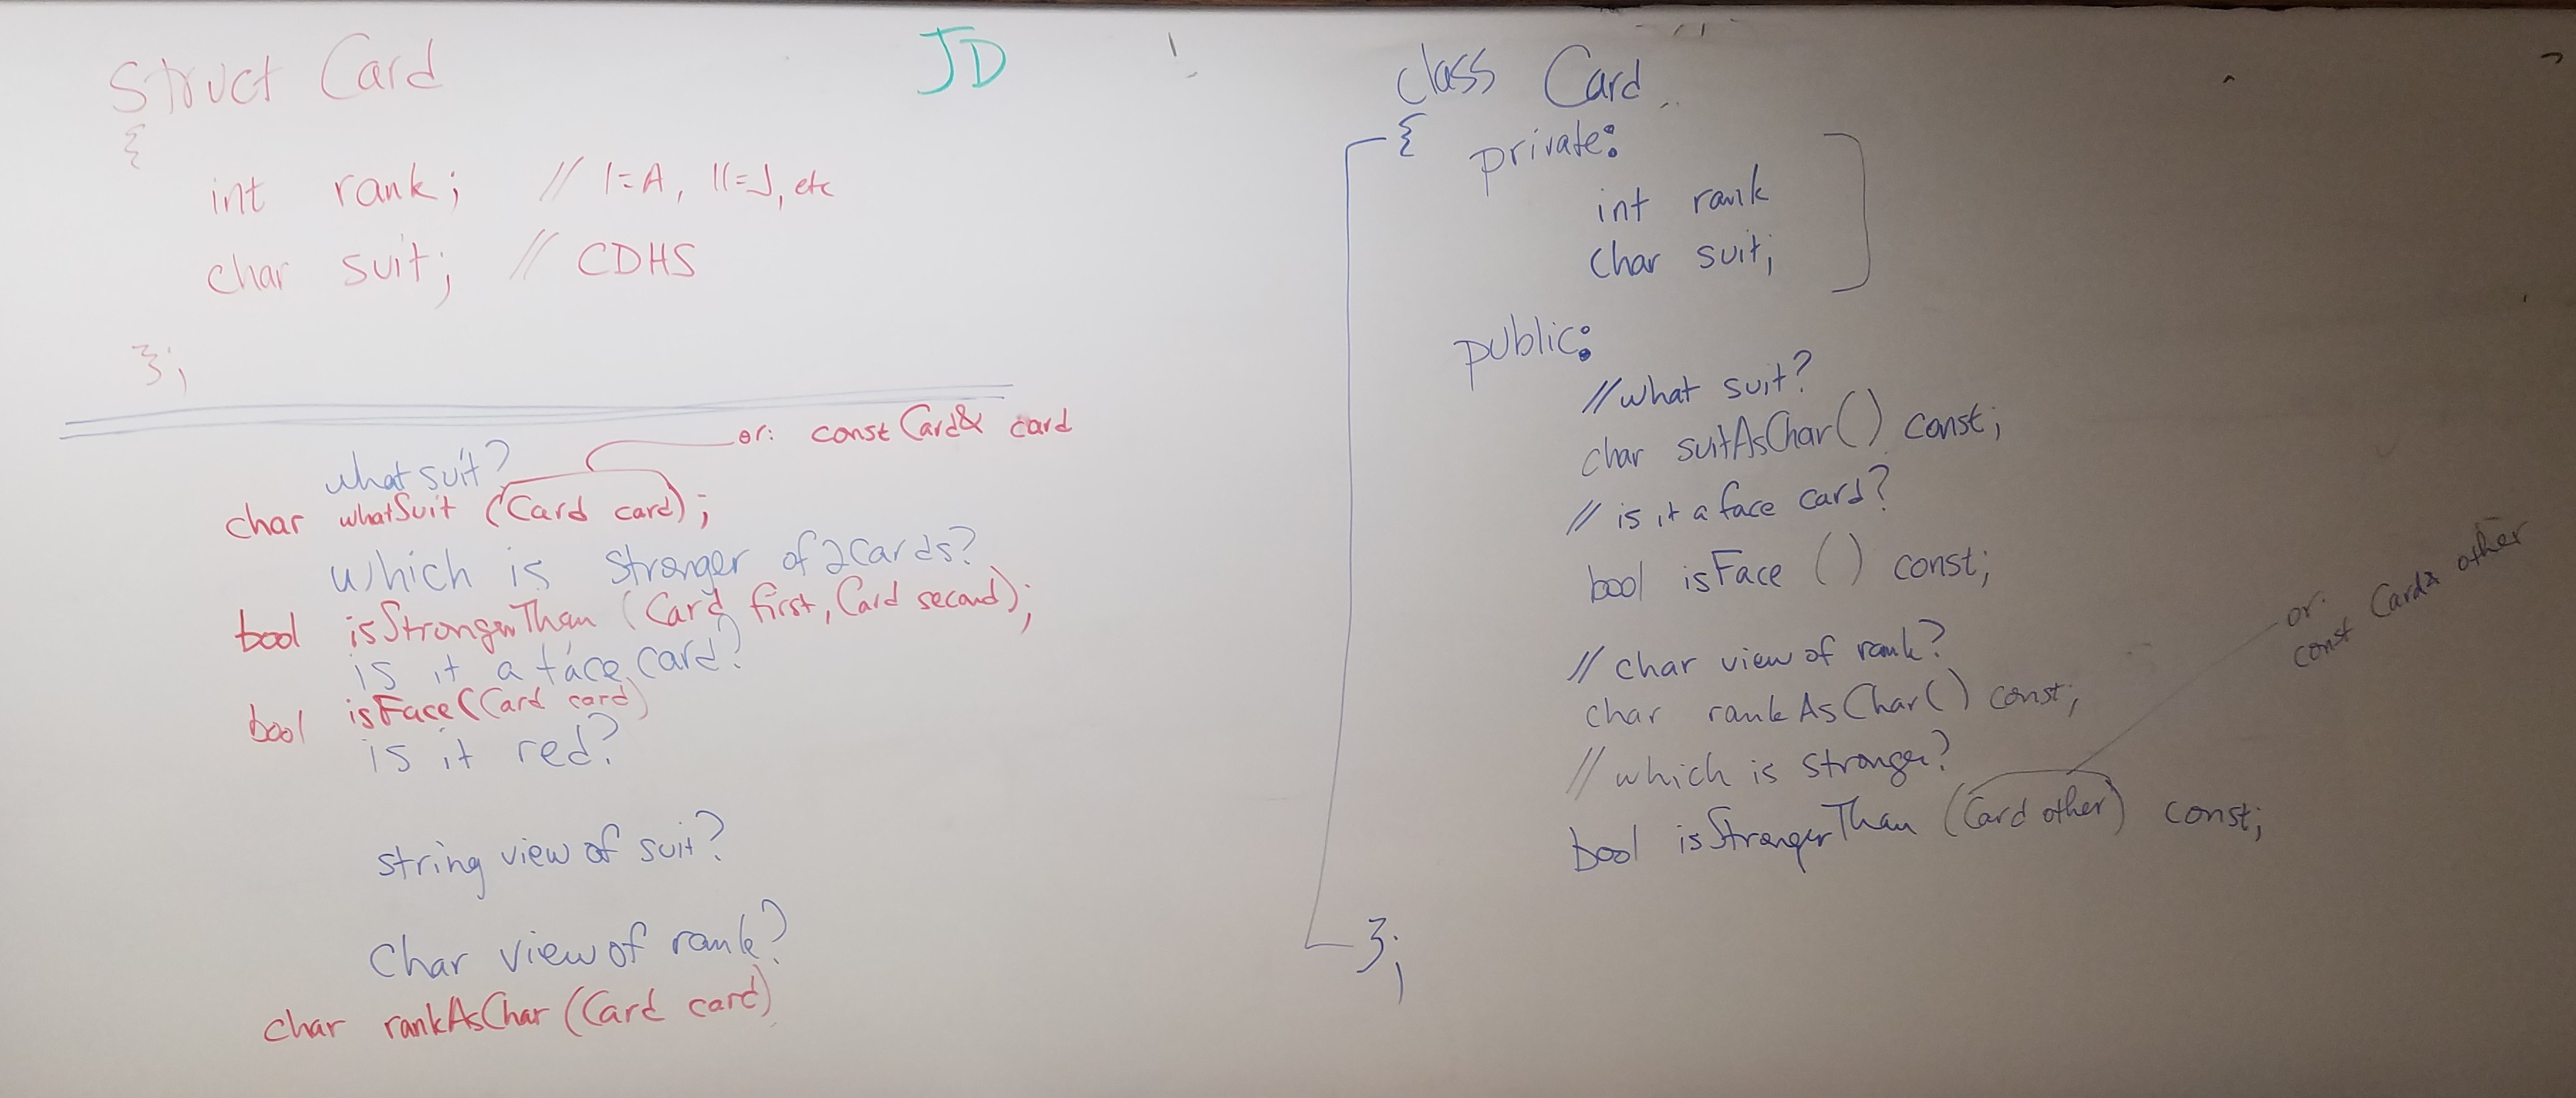 Struct Card
{
int rank; // 1=A, 11=J, etc
char suit; // CDHS
};
or: const Card& card
what suit?
char whatSuit (Card card);
which is stronger of 2 cards?
bool isStrongerThan (Card first, Card second);
is it a face card?
bool isFace (Card card)
is it red?
string view of suit?
Char view of rank?
char rankAsChar (Card card)
JD
class Card
{ private:
int rank
char suit;
public:
// what suit?
char suitAsChar() const;
// is it a face card?
bool isFace () const;
// char view of rank?
char rankAsChar() const;
// which is stronger?
bool isStrongerThan (Card other) const;
or:
const Card& other
};